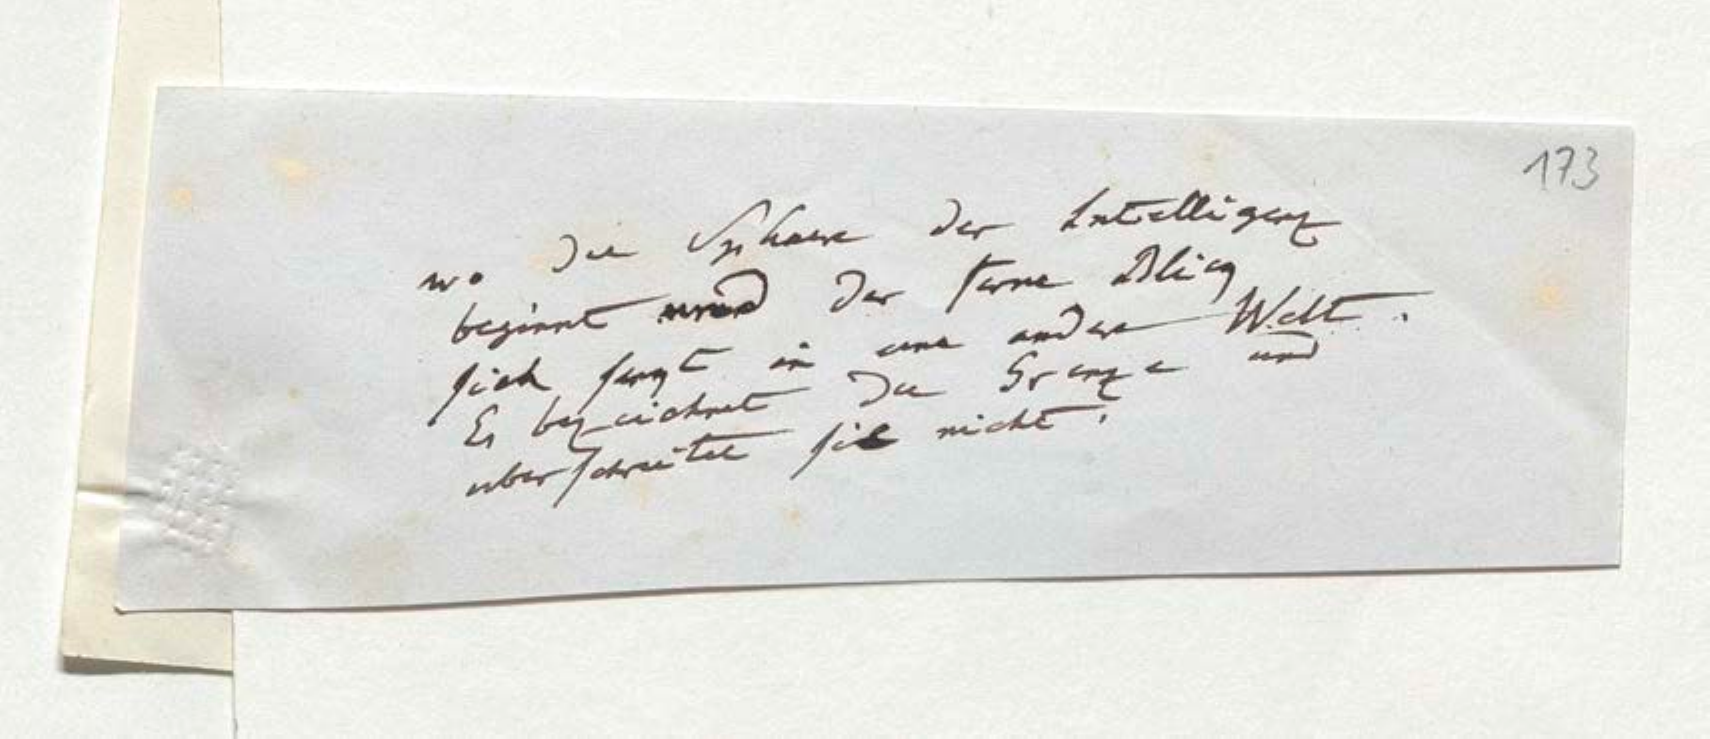 173
wo die Sphaere der Intelligenz
beginnt und der ferne Blick
sich senkt in eine andere Welt.
Er bezeichnet die Grenze und
uberschreitet sie nicht.